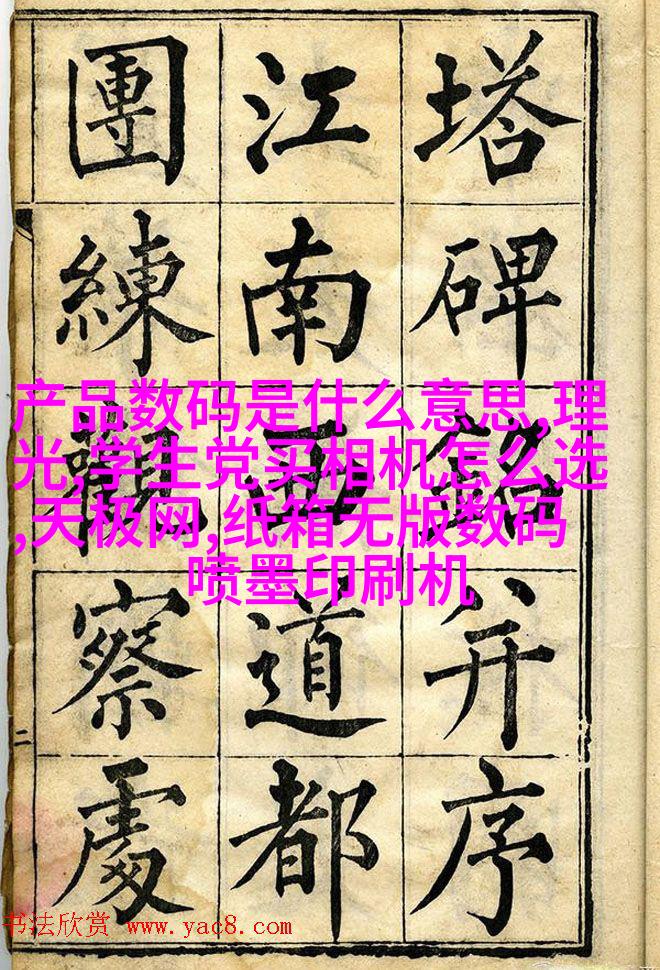 塔碑銘并序
江南西道都
團練觀察處
二
产品数码是什么意思,理
光,学生党买相机怎么选
,天极网,纸箱无版数码
喷墨印刷机
书法欣赏 www.yac8.com